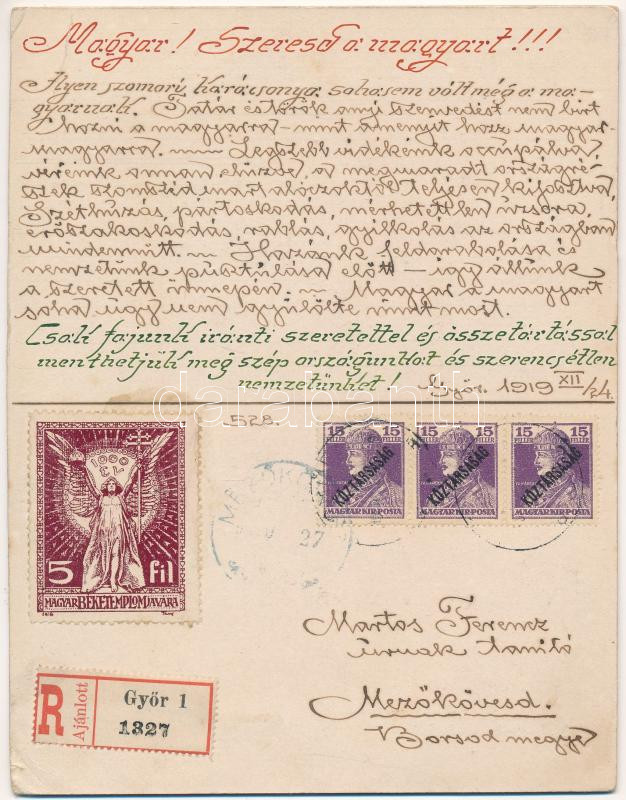 Magyar! Szeresd a magyart!!!
Ilyen szomorú karácsonya sohasem vólt még a ma-
gyarnak. Tatár és török annyi szenvedést nem birt
hozni a magyarra – mint amenyit hoz magyar-
magyarra. — Legszebb vidékeink
véreink annan elüzve, a megmaradt országré-
szek szomszéd martalóczoktól teljesen kifosztva,
Széthúzás, pártoskodás, mérhetetlen uzsora,
erőszakoskodás, rablás, gyilkolás az országban
mindenütt. — Hazánk feldarabolása és
nemzetünk pusztulása előtt – igy állunk
a szeretett ünnepén. — Magyar a magyart
soha úgy nem gyülölte mint most.
Csak fajunk iránti szeretettel és összetartással
menthetjük meg szép országunkat és szerencsétlen
nemzetünket! Győr. 1919 XII/24.
528.
1000 ÉV
5 fil
MAGYAR BÉKETEMPLOM JAVÁRA
15 FILLÉR 15
KÖZTÁRSASÁG
MAGYAR KIR. POSTA
15 FILLÉR 15
KÖZTÁRSASÁG
MAGYAR KIR. POSTA
15 FILLÉR 15
KÖZTÁRSASÁG
MAGYAR KIR. POSTA
27
Martos Ferencz
úrnak tanító
Mezőkövesd.
Borsod megye
R Ajánlott
Győr 1
1327
darabanth